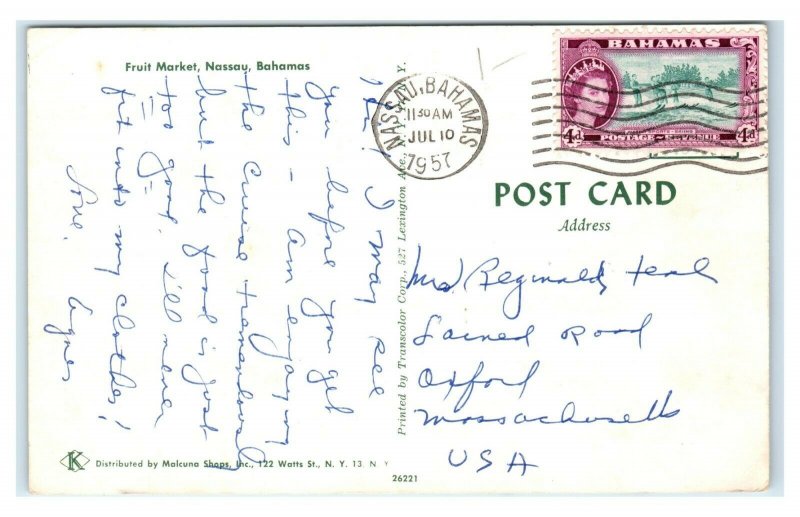 Fruit Market, Nassau, Bahamas
Hi, I may see
you before you get
this – am enjoying
the cruise tremendously
but the food is just
too good. I'll never
fit into my clothes!
Love,
Agnes
Printed by Transcolor Corp., 527 Lexington Ave., N. Y.
NASSAU, BAHAMAS
1130 AM
JUL 10
1957
BAHAMAS
4d
4d
POSTAGE REVENUE
POST CARD
Address
Mrs Reginald
Road
Oxford
Massachusetts
USA
K Distributed by Malcuna Shops, Inc., 122 Watts St., N. Y. 13 N Y
26221